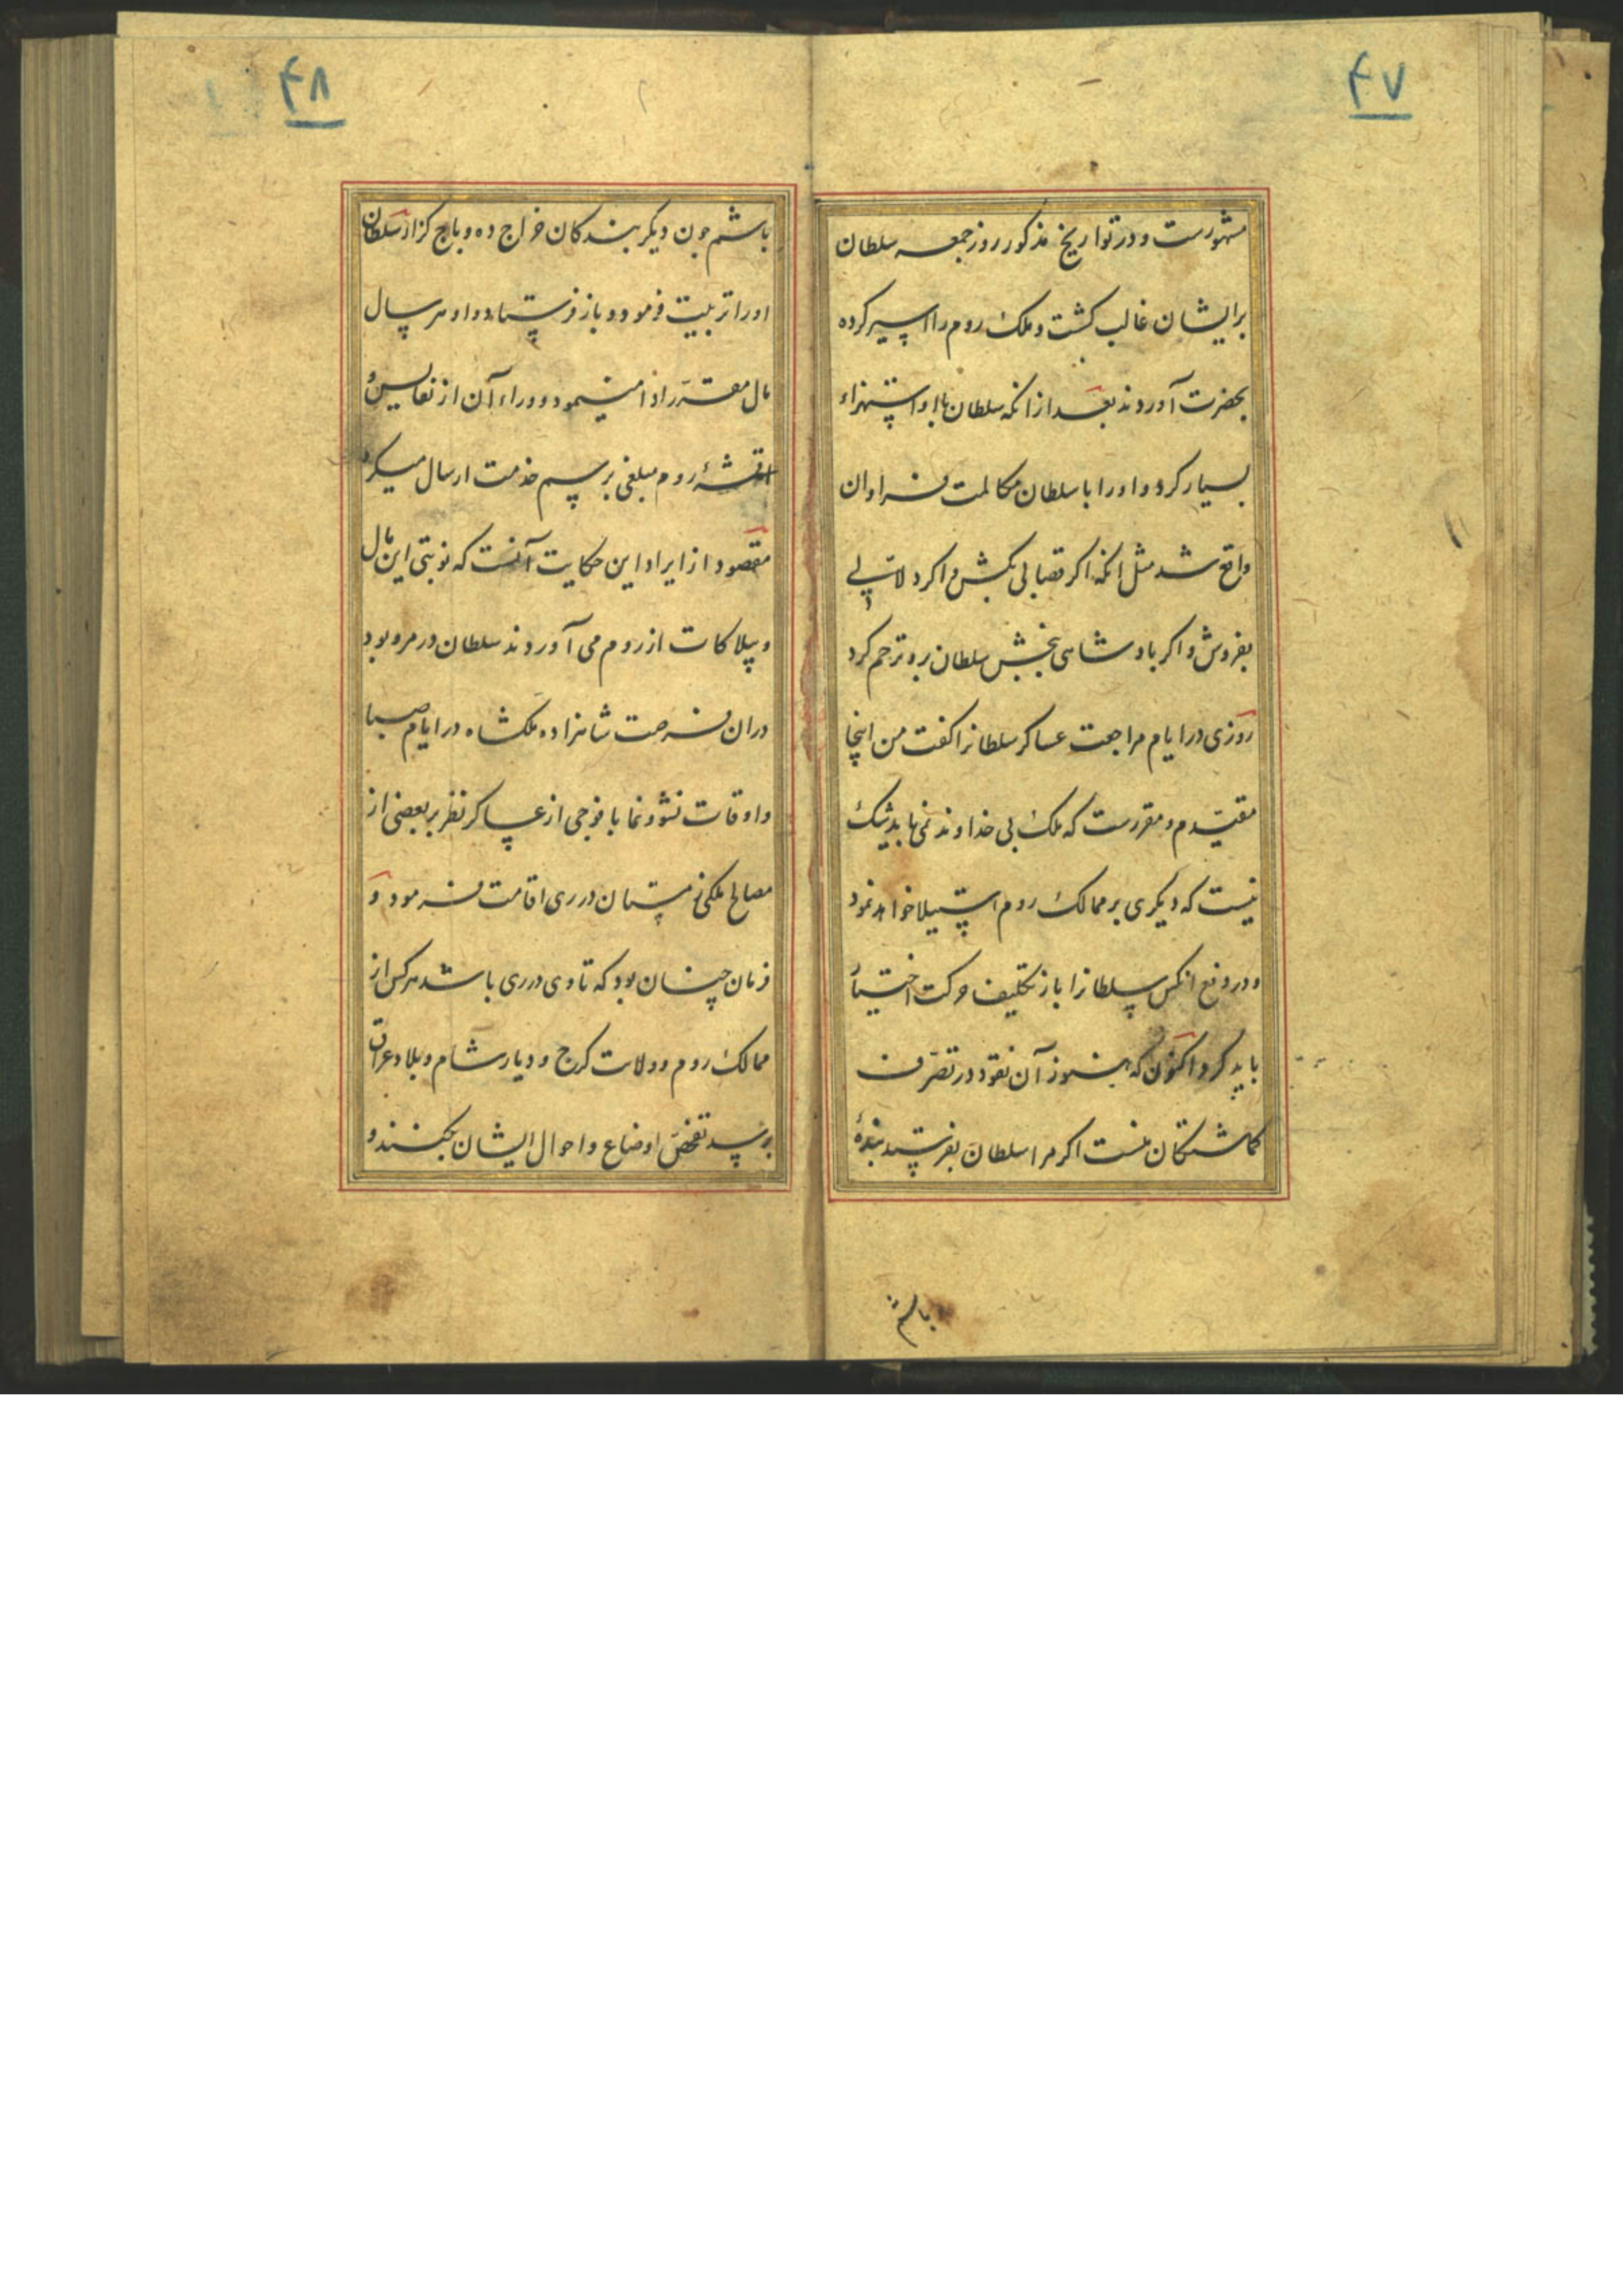 ۴۷
مشهورست و در تواریخ مذکور روز جمعه سلطان
برایشان غالب کشت و ملک روم را اسیر کرده
بحضرت آوردند بعد از انکه سلطان با او استهزاء
بسیار کرد و او را با سلطان مکالمت فراوان
واقع شد مثل انکه اکر قصابی بکش و اکر دلالی
بفروش و اکر پادشاهی ببخش سلطان برو ترحم کرد
روزی در ایام مراجعت عساکر سلطانرا کفت من اینجا
مقیدم و مقررست که ملک بی خداوند نمی باید شک
نیست که دیکری بر ممالک روم استیلا خواهد نمود
و در دفع انکس سلطانرا باز تکلیف حرکت
باید کرد اکنون که هنوز آن نقود در تصرف
کماشتکان منست اکر مرا سلطان بفرستد بندهٔ
باشم
۴۸
باشم چون دیکر بندکان خراج ده و باج کزار سلطان
او را تربیت فرمود و باز فرستاد و او هر سال
مال مقرر ادا مینمود و وراء آن از نفایس
اقمشهٔ روم مبلغی برسم خدمت ارسال میکرد
مقصود از ایراد این حکایت آنست که نوبتی این مال
و بیلاکات از روم می آوردند سلطان در مرو بود
دران فرصت شاهزاده ملکشاه در ایام صبا
و اوقات نشو و نما با فوجی از عساکر نظر بر بعضی از
مصالح ملکی زمستان در ری اقامت فرمود و
فرمان چنان بود که تا وی در ری باشد هر کس از
ممالک روم و ولات کرج و دیار شام و بلاد عراق
برسد تفحص اوضاع و احوال ایشان بکنند و